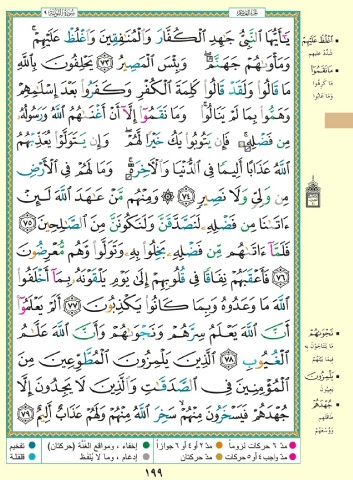 سُورَةُ التَّوْبَةِ ٩
الجزء العاشر
يَٰٓأَيُّهَا ٱلنَّبِىُّ جَٰهِدِ ٱلْكُفَّارَ وَٱلْمُنَٰفِقِينَ وَٱغْلُظْ عَلَيْهِمْ
وَمَأْوَىٰهُمْ جَهَنَّمُ وَبِئْسَ ٱلْمَصِيرُ ﴿٧٣﴾ يَحْلِفُونَ بِٱللَّهِ
مَا قَالُوا۟ وَلَقَدْ قَالُوا۟ كَلِمَةَ ٱلْكُفْرِ وَكَفَرُوا۟ بَعْدَ إِسْلَٰمِهِمْ
وَهَمُّوا۟ بِمَا لَمْ يَنَالُوا۟ وَمَا نَقَمُوٓا۟ إِلَّآ أَنْ أَغْنَىٰهُمُ ٱللَّهُ وَرَسُولُهُۥ
مِن فَضْلِهِۦ فَإِن يَتُوبُوا۟ يَكُ خَيْرًا لَّهُمْ وَإِن يَتَوَلَّوْا۟ يُعَذِّبْهُمُ
ٱللَّهُ عَذَابًا أَلِيمًا فِى ٱلدُّنْيَا وَٱلْءَاخِرَةِ وَمَا لَهُمْ فِى ٱلْأَرْضِ
مِن وَلِىٍّ وَلَا نَصِيرٍ ﴿٧٤﴾ وَمِنْهُم مَّنْ عَٰهَدَ ٱللَّهَ لَئِنْ
ءَاتَىٰنَا مِن فَضْلِهِۦ لَنَصَّدَّقَنَّ وَلَنَكُونَنَّ مِنَ ٱلصَّٰلِحِينَ ﴿٧٥﴾
فَلَمَّآ ءَاتَىٰهُم مِّن فَضْلِهِۦ بَخِلُوا۟ بِهِۦ وَتَوَلَّوا۟ وَّهُم مُّعْرِضُونَ
﴿٧٦﴾ فَأَعْقَبَهُمْ نِفَاقًا فِى قُلُوبِهِمْ إِلَىٰ يَوْمِ يَلْقَوْنَهُۥ بِمَآ أَخْلَفُوا۟
ٱللَّهَ مَا وَعَدُوهُ وَبِمَا كَانُوا۟ يَكْذِبُونَ ﴿٧٧﴾ أَلَمْ يَعْلَمُوٓا۟
أَنَّ ٱللَّهَ يَعْلَمُ سِرَّهُمْ وَنَجْوَىٰهُمْ وَأَنَّ ٱللَّهَ عَلَّٰمُ
ٱلْغُيُوبِ ﴿٧٨﴾ ٱلَّذِينَ يَلْمِزُونَ ٱلْمُطَّوِّعِينَ مِنَ
ٱلْمُؤْمِنِينَ فِى ٱلصَّدَقَٰتِ وَٱلَّذِينَ لَا يَجِدُونَ إِلَّا
جُهْدَهُمْ فَيَسْخَرُونَ مِنْهُمْ سَخِرَ ٱللَّهُ مِنْهُمْ وَلَهُمْ عَذَابٌ أَلِيمٌ ﴿٧٩﴾
ٱغْلُظْ عَلَيْهِمْ
شدّد عليهم
مَا نَقَمُوا
ما كرهوا
وما عابوا
نَجْوَاهُمْ
ما يتناجون به
فيما بينهم
يَلْمِزُونَ
يعيبون
جُهْدَهُمْ
طاقتهم
ووسعهم
مدّ ٦ حركات لزوماً
مدّ ٢ أو ٤ أو ٦ جوازاً
إخفاء، ومواقع الغُنَّة (حركتان)
تفخيم
مدّ واجب ٤ أو ٥ حركات
مدّ حركتان
إدغام، وما لا يُلفَظ
قلقلة
١٩٩